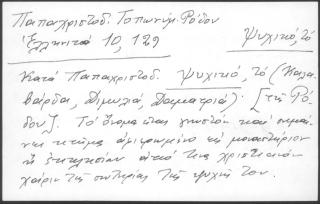 Παπαχριστοδ. Τοπωνύμ. Ρόδου
Ἑλληνικά 10, 129 Ψυχικό, τό
Κατά Παπαχριστοδ. Ψυχικό, τό (Καλα-
βάρδα, Διμυλιά, Δαματριά). [τῆς Ρό-
δου]. Τό ὄνομα εἶναι γνωστόν καί σημαί-
νει κτῆμα ἀφιερωμένο σέ μοναστήριον
ἤ ἐκκλησίαν ἀπό τους χριστιανόν
χάριν τῆς σωτηρίας τῆς ψυχῆς του.